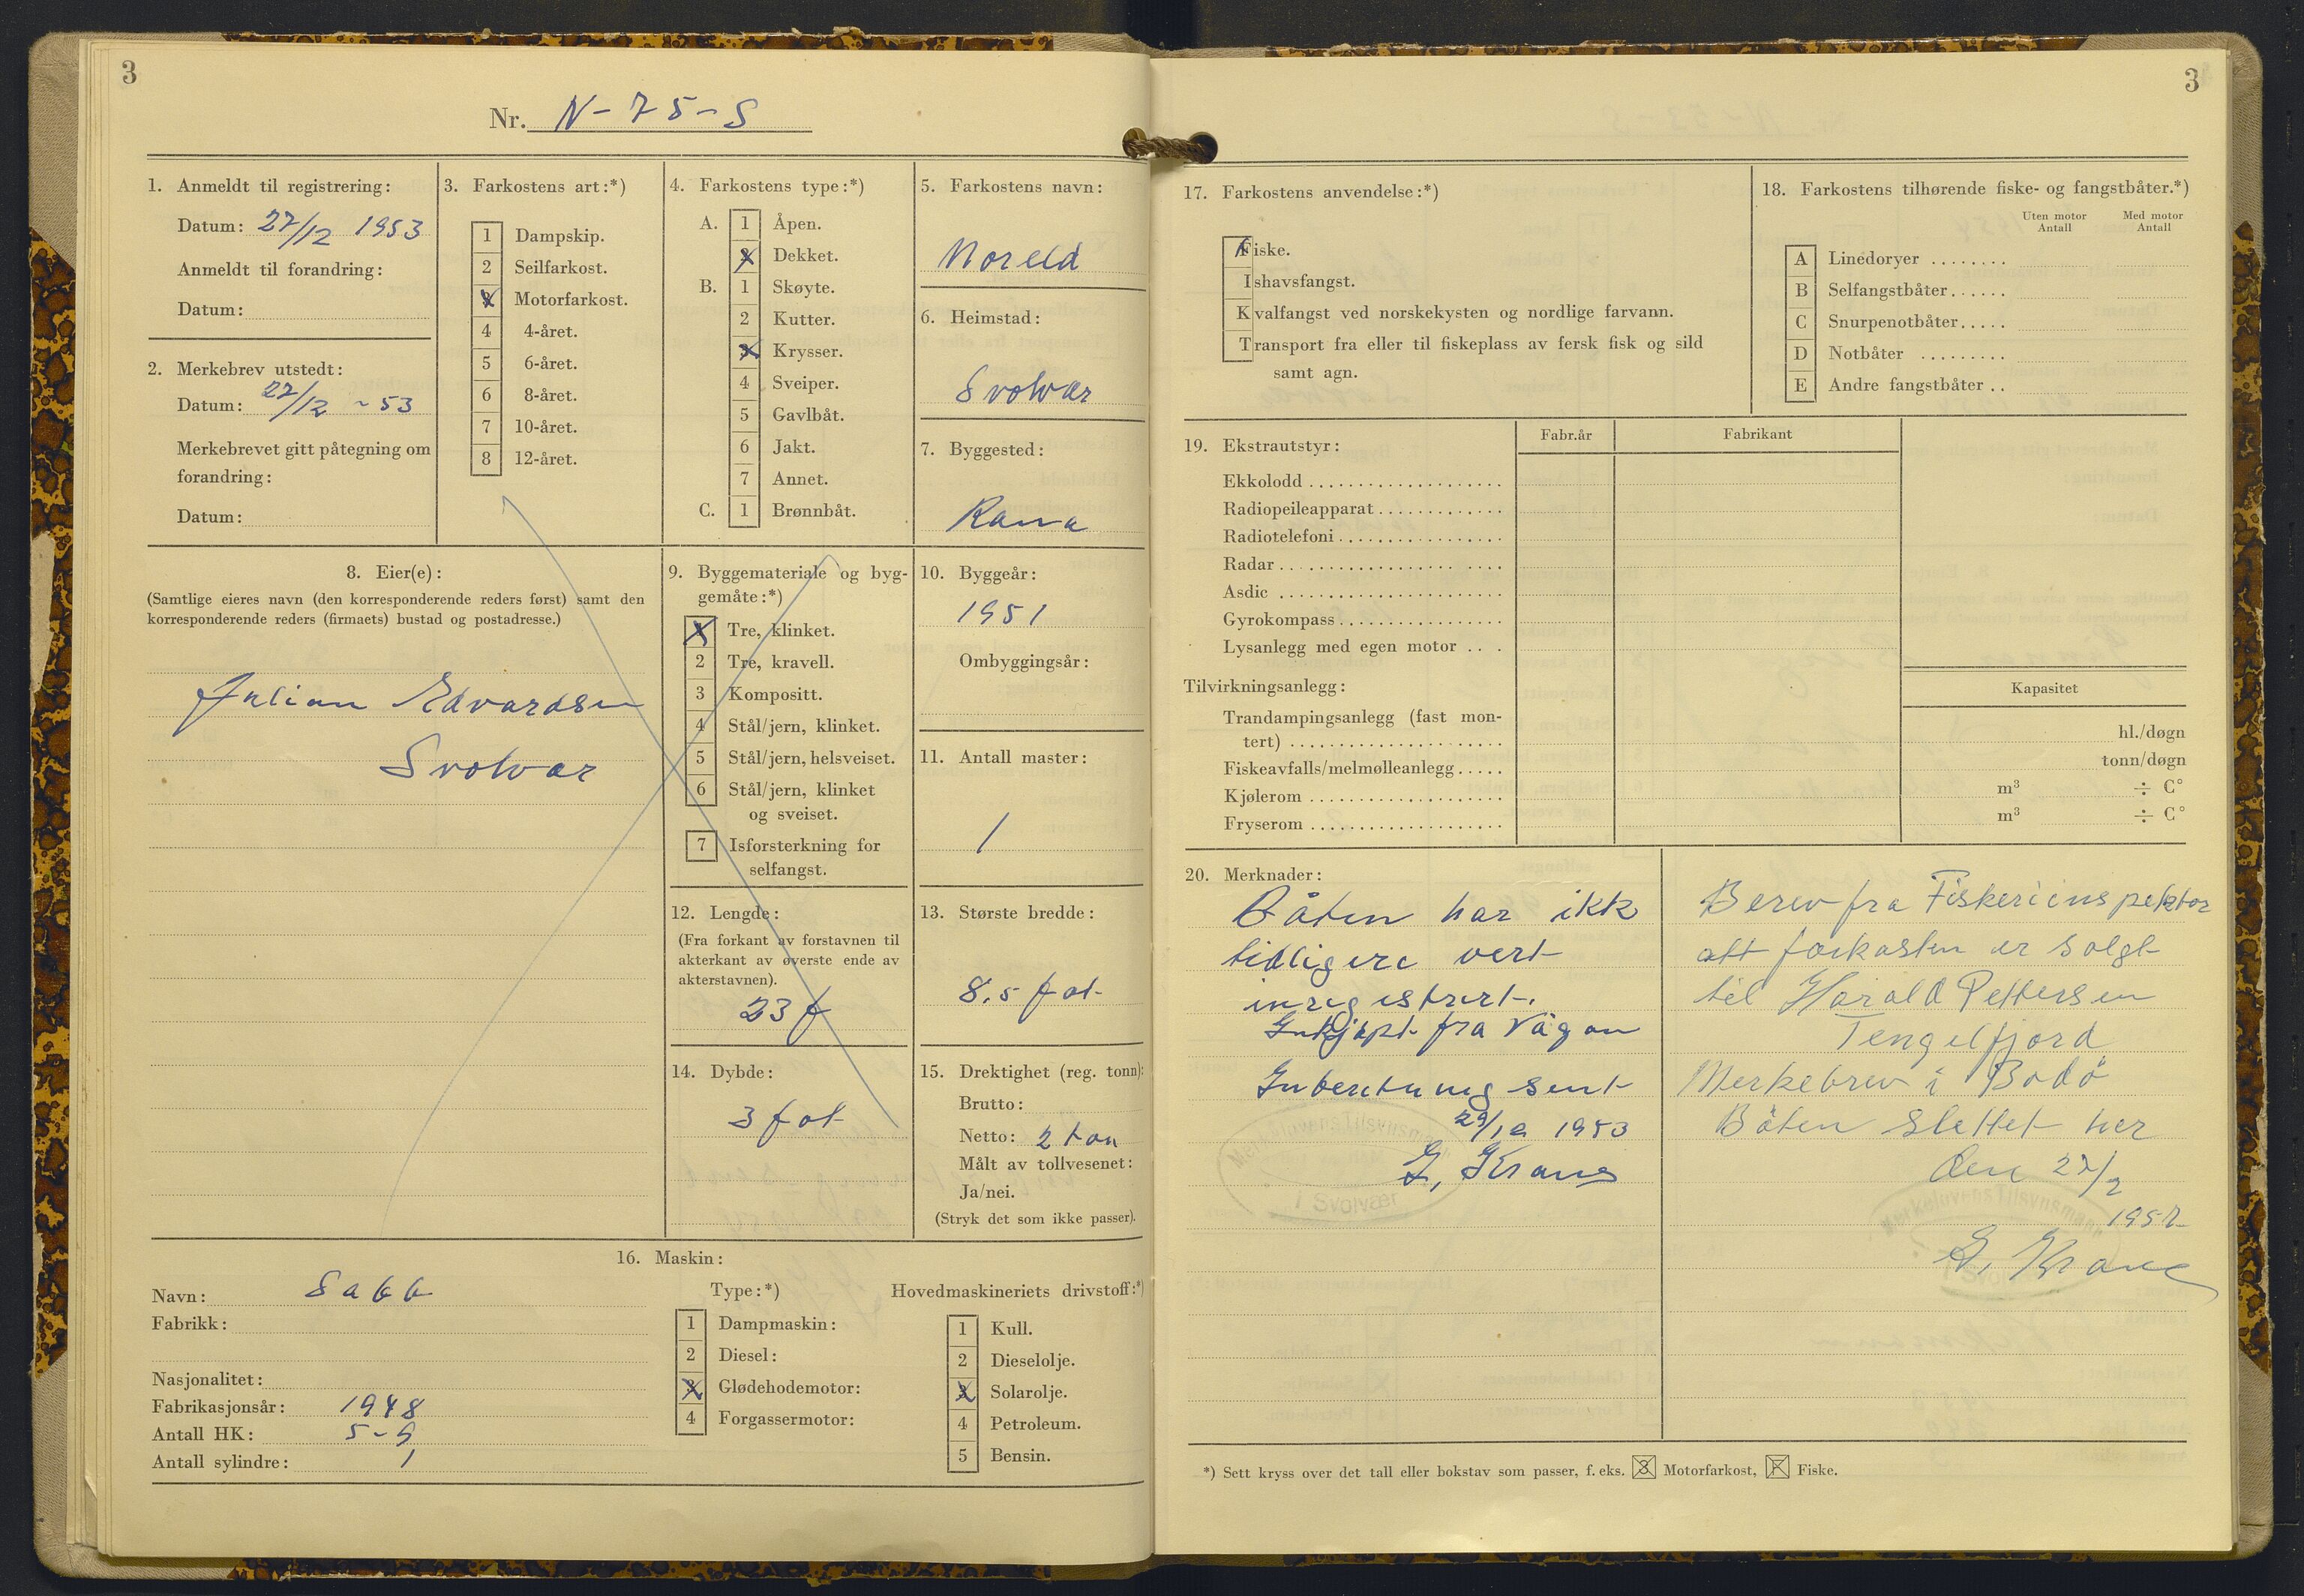 3
Nr. N-75-S
1. Anmeldt til registrering:
Datum: 27/12 1953
Anmeldt til forandring:
Datum:
2. Merkebrev utstedt:
Datum: 27/12 - 53
Merkebrevet gitt påtegning om
forandring:
Datum:
3. Farkostens art:*)
1 Dampskip.
2 Seilfarkost.
3 Motorfarkost.
4 4-året.
5 6-året.
6 8-året.
7 10-året.
8 12-året.
4. Farkostens type:*)
A. 1 Åpen.
2 Dekket.
B. 1 Skøyte.
2 Kutter.
3 Krysser.
4 Sveiper.
5 Gavlbåt.
6 Jakt.
7 Annet.
C. 1 Brønnbåt.
5. Farkostens navn:
Noreld
6. Heimstad:
Svolvær
7. Byggested:
Rana
8. Eier(e):
(Samtlige eieres navn (den korresponderende reders først) samt den
korresponderende reders (firmaets) bustad og postadresse.)
Julian Edvardsen
Svolvær
9. Byggemateriale og byg-
gemåte:*)
1 Tre, klinket.
2 Tre, kravell.
3 Kompositt.
4 Stål/jern, klinket.
5 Stål/jern, helsveiset.
6 Stål/jern, klinket
og sveiset.
7 Isforsterkning for
selfangst.
10. Byggeår:
1951
Ombyggingsår:
11. Antall master:
1
12. Lengde:
(Fra forkant av forstavnen til
akterkant av øverste ende av
akterstavnen).
23 f
13. Største bredde:
8,5 fot
14. Dybde:
3 fot
15. Drektighet (reg. tonn):
Brutto:
Netto: 2 ton
Målt av tollvesenet:
Ja/nei.
(Stryk det som ikke passer).
16. Maskin:
Navn: Sabb
Fabrikk:
Nasjonalitet:
Fabrikasjonsår: 1948
Antall HK: 5-6
Antall sylindre: 1
Type:*)
1 Dampmaskin:
2 Diesel:
3 Glødehodemotor:
4 Forgassermotor:
Hovedmaskineriets drivstoff:*)
1 Kull.
2 Dieselolje.
3 Solarolje.
4 Petroleum.
5 Bensin.
3
17. Farkostens anvendelse:*)
Fiske.
Ishavsfangst.
Kvalfangst ved norskekysten og nordlige farvann.
Transport fra eller til fiskeplass av fersk fisk og sild
samt agn.
18. Farkostens tilhørende fiske- og fangstbåter.*)
Uten motor Med motor
Antall Antall
A Linedoryer ........
B Selfangstbåter......
C Snurpenotbåter.....
D Notbåter .........
E Andre fangstbåter ..
19. Ekstrautstyr:
Fabr.år Fabrikant
Ekkolodd
Radiopeileapparat
Radiotelefoni
Radar
Asdic
Gyrokompass
Lysanlegg med egen motor ...
Tilvirkningsanlegg:
Kapasitet
Trandampingsanlegg (fast mon-
tert) hl./døgn
Fiskeavfalls/melmølleanlegg..... tonn/døgn
Kjølerom m³ ÷ C°
Fryserom m³ ÷ C°
20. Merknader:
Båten har ikk
tidligere vert
inregistrert.
Innkjøpt fra Vågan
Inberetning sent
29/12 1953
G. Krane
Merkelovens Tilsynsmann
i Svolvær
Berev fra Fiskeriinspektør
att farkosten er solgt
til Harald Pettersen
Tengelfjord
Merkebrev i Bodö
Båten slettet her
den 27/2
1957
G. Krane
Merkelovens Tilsynsmann
*) Sett kryss over det tall eller bokstav som passer, f. eks. 3 Motorfarkost, F Fiske.